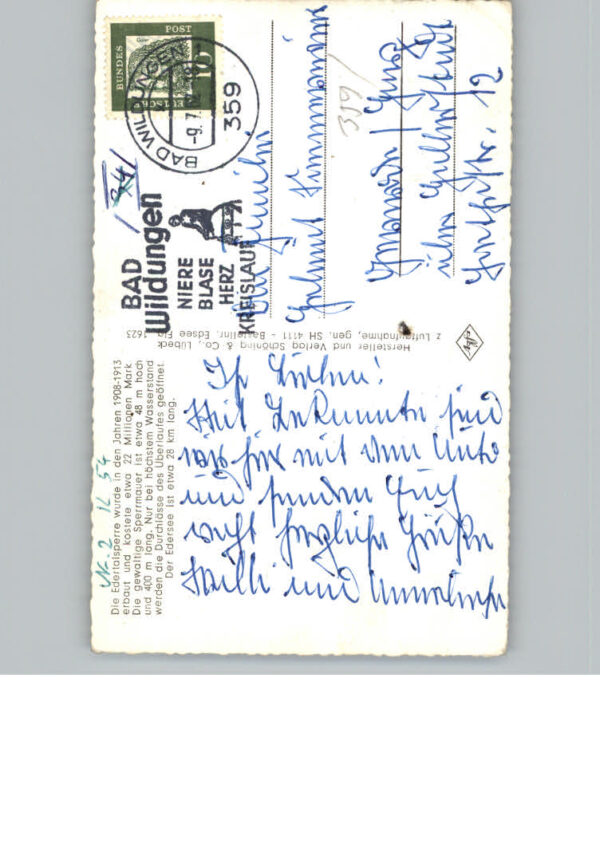 DEUTSCHE
BUNDES
POST
10
BAD WILDUNGEN
359
BAD
Wildungen
NIERE
BLASE
HERZ
KREISLAUF
Familie
Helmut Zimmermann
über
12
Hersteller und Verlag Schöning & Co., Lübeck
z Luftaufnahme, gen. SH 4111 - Bestellnr. Edsee 1623
Die Edertalsperre wurde in den Jahren 1908-1913
erbaut und kostete etwa 22 Millionen Mark
Die gewaltige Sperrmauer ist etwa 48 m hoch
und 400 m lang. Nur bei höchstem Wasserstand
werden die Durchlässe des Überlaufes geöffnet.
Der Edersee ist etwa 28 km lang.
Ihr Lieben!
Mit Bekannte sind
wir hier mit dem Auto
und senden Euch
recht herzliche Grüße
Willi und Anneliese